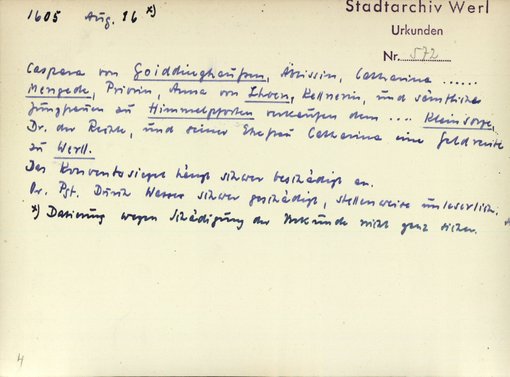 1605 Aug. 16 x)
Stadtarchiv Werl
Urkunden
Nr. 572
Caspara von Goiddinghaußen, Äbtissin, Catharina ......
Mengede, Priorin, Anna von Loen, Kellnerin, und sämtliche
Jungfrauen zu Himmelpforten verkaufen dem .... Kleinsorge,
Dr. der Rechte, und seiner Ehefrau Catharina eine Geldrente
zu Werll.
Das Konventssiegel hängt schwer beschädigt an.
Or. Pgt. Durch Wasser schwer geschädigt, stellenweise unleserlich.
x) Datierung wegen Schädigung der Urkunde nicht ganz sicher.
4